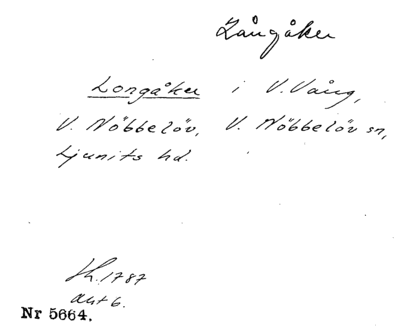 Långåker
Longåker i V. Vång,
V. Nöbbelöv, V. Nöbbelöv sn,
Ljunits hd.
Sk. 1787
akt 6.
Nr 5664.